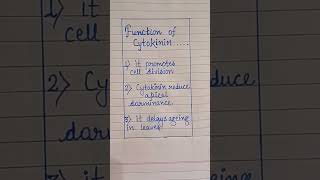 Function of
Cytokinin.....
1) It promotes
cell division
2) Cytokinin reduce
apical
darminance
3) It delays ageing
in leaves